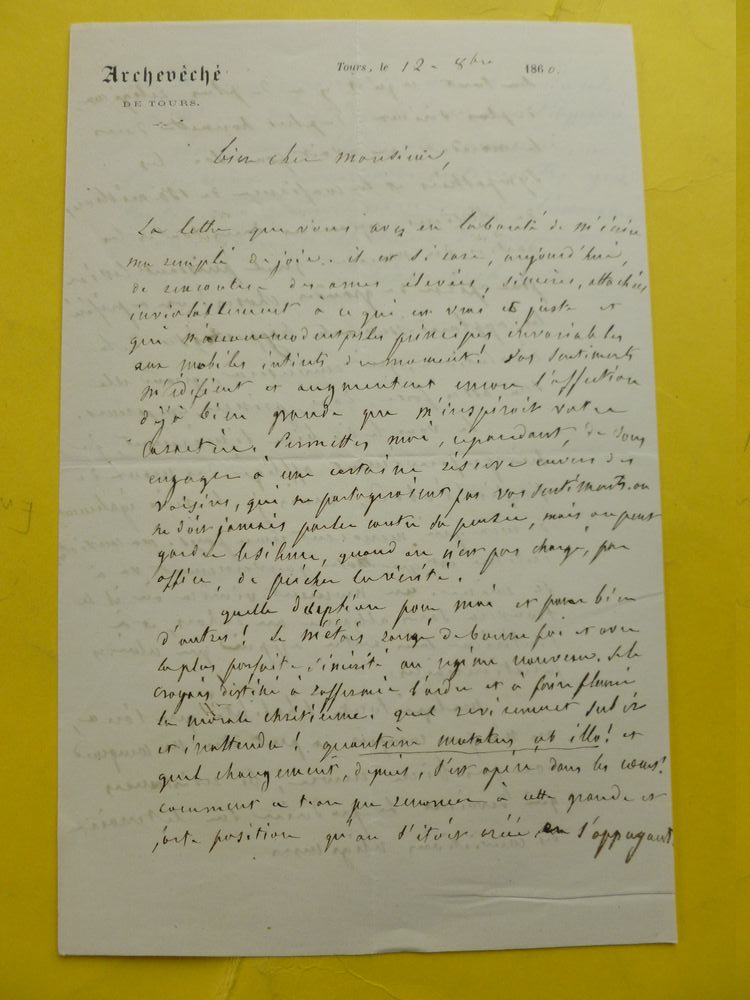 Archevêché
DE TOURS.
Tours, le 12 - 8bre 1860.
bien cher monsieur,
La lettre que vous avez eu la bonté de m'écrire
ma remplit de joie. il est si rare, aujourd'hui,
de rencontrer des ames élevées, sincères, attachées
inviolablement à ce qui est vrai et juste et
qui n'accommodent pas les principes invariables
aux mobiles intérêts du moment! vos sentiments
m'édifient et augmentent encore l'affection
déjà bien grande que m'inspiroit votre
Caractère. Permettez moi, cependant, de vous
engager à une certaine réserve envers des
voisins, qui ne partageroient pas vos sentiments. on
ne doit jamais parler contre sa pensée, mais on peut
garder le silence, quand on n'est pas chargé, par
office, de prêcher la vérité.
quelle déception pour moi et pour bien
d'autres! Je m'étois rangé de bonne foi et avec
la plus parfaite sincérité au régime nouveau. Je le
croyais destiné à raffermir l'ordre et à faire fleurir
la morale chrétienne. quel revirement subit
et inattendu! quantùm mutatus ab illo! et
quel changement, depuis, s'est opéré dans les cœurs!
comment a t-on pu renoncer à cette grande et
forte position qu'on s'étoit créée en s'appuyant